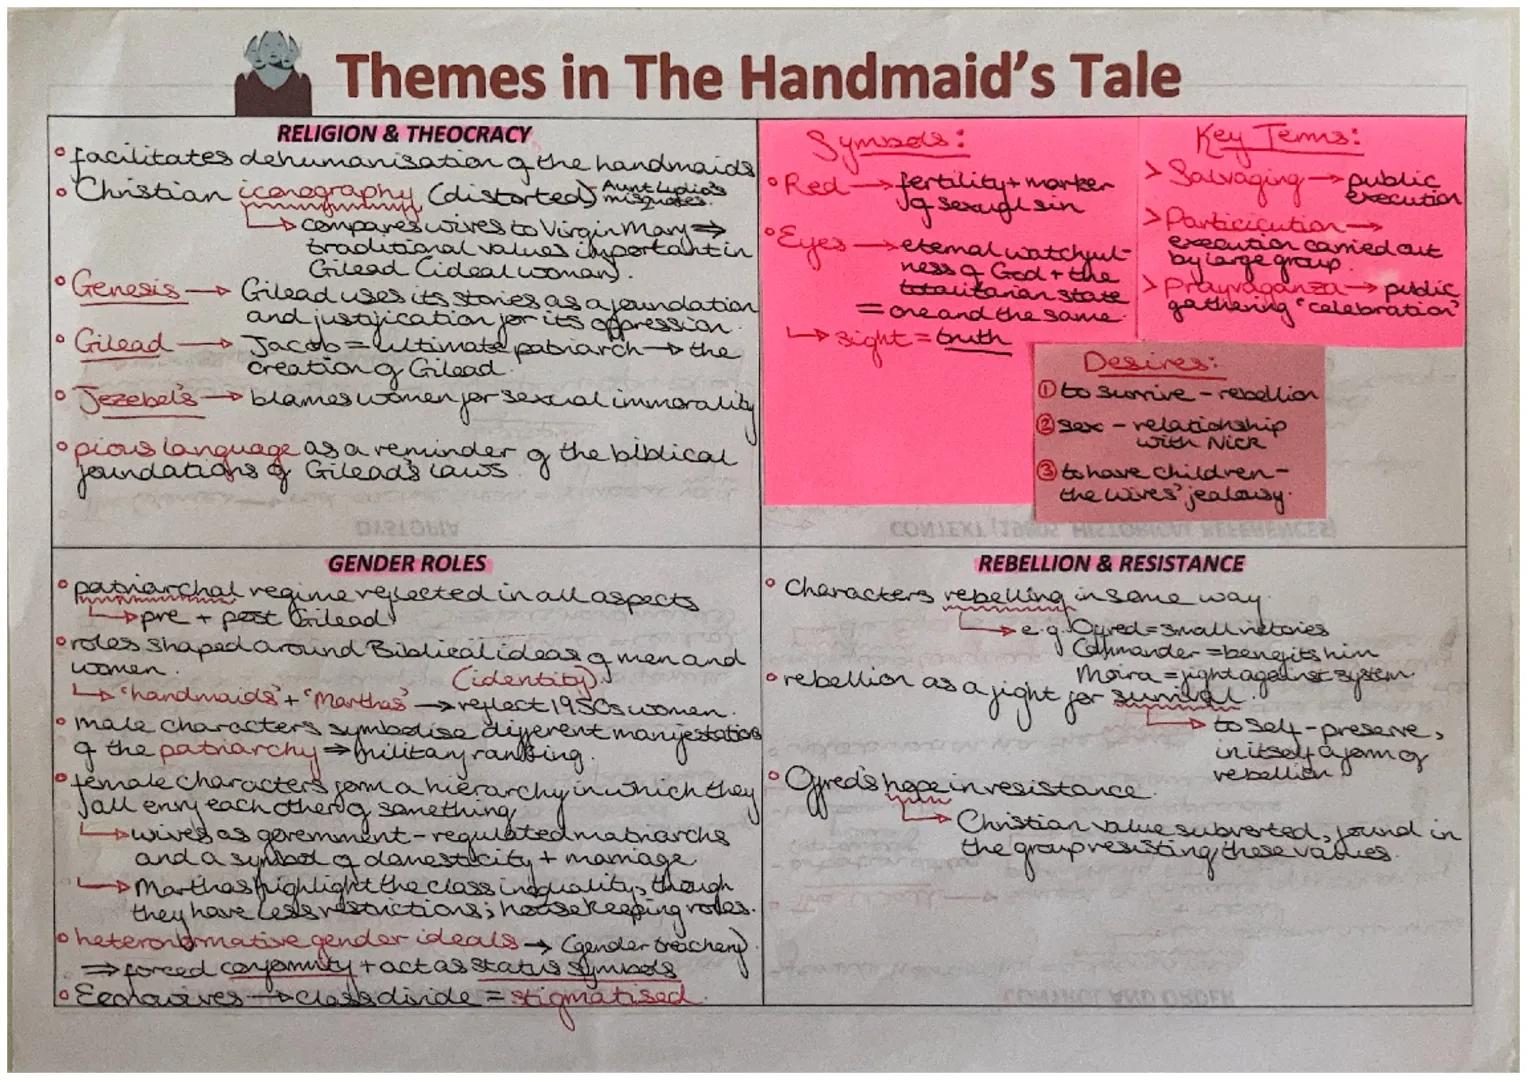 Themes in The Handmaid's Tale
RELIGION & THEOCRACY
° facilitates dehumanisation of the handmaids
° Christian iconography (distorted) Aunt Lydia's misquotes.
↳ compares wives to Virgin Mary ⇒
traditional values important in
Gilead (ideal woman).
° Genesis → Gilead uses its stories as a foundation
and justification for its oppression.
° Gilead → Jacob = ultimate patriarch → the
creation of Gilead.
° Jezebel's → blames women for sexual immorality
° pious language as a reminder of the biblical
foundations of Gilead's laws.
Symbols:
° Red → fertility + marker
of sexual sin
° Eyes → eternal watchful-
ness of God + the
totalitarian state
= one and the same.
↳ sight = truth
Key Terms:
> Salvaging → public
execution
> Particicution →
execution carried out
by large group.
> Prayvaganza → public
gathering 'celebration'
Desires:
① to survive - rebellion
② sex - relationship
with Nick
③ to have children -
the wives' jealousy.
DYSTOPIA
CONTEXT (1980s HISTORICAL REFERENCES)
GENDER ROLES
° patriarchal regime reflected in all aspects
↳ pre + post Gilead
° roles shaped around Biblical ideas of men and
women. (identity)
↳ 'handmaids' + 'Marthas' → reflect 1950s women.
° male characters symbolise different manifestations
of the patriarchy ⇒ military ranking.
° female characters form a hierarchy in which they
all envy each other of something
↳ wives as government-regulated matriarchs
and a symbol of domesticity + marriage
↳ Marthas highlight the class inequality, though
they have less restrictions; housekeeping roles.
° heteronormative gender ideals → (gender treachery)
⇒ forced conformity + act as status symbols
° Econowives → class divide = stigmatised.
REBELLION & RESISTANCE
° Characters rebelling in some way.
↳ e.g. Offred = small victories
Commander = benefits him
Moira = fight against system.
° rebellion as a fight for survival.
↳ to self-preserve,
in itself a form of
rebellion
° Offred's hope in resistance.
↳ Christian value subverted, found in
the group resisting these values.
CONTROL AND ORDER